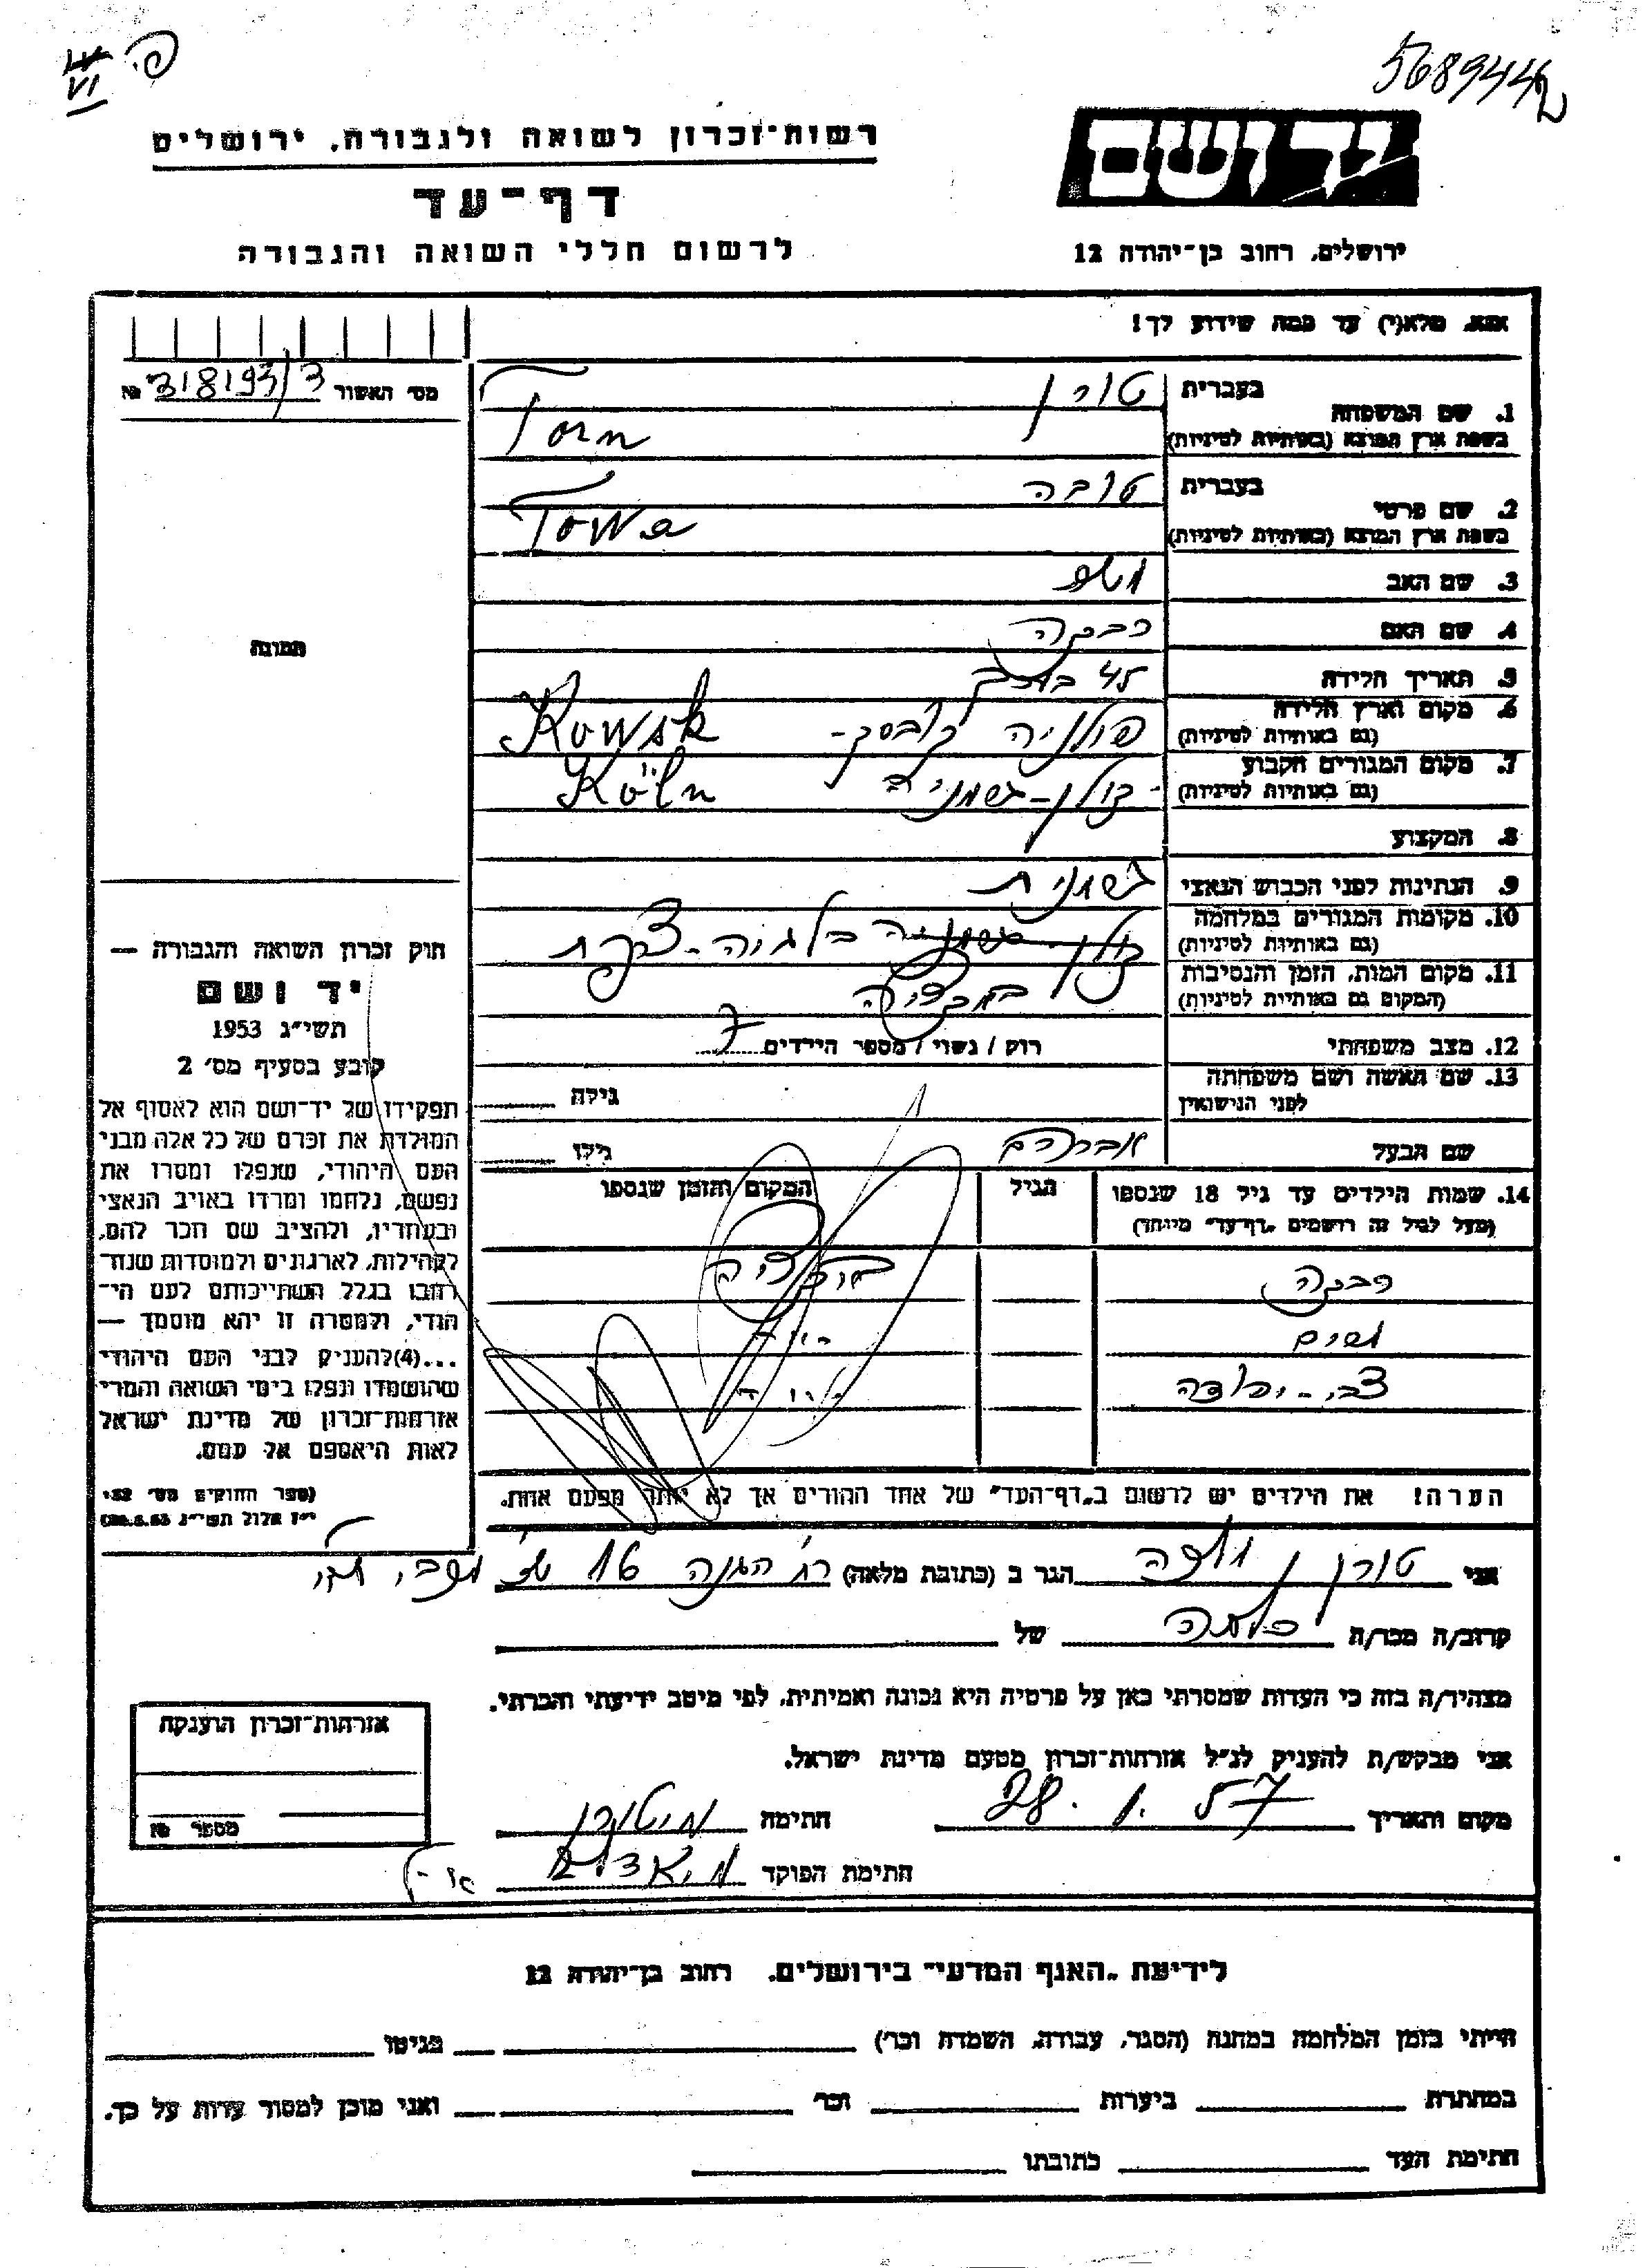 5689442
פ.
VI
יד ושם
רשות־זכרון לשואה ולגבורה, ירושלים
דף־עד
לרשום חללי השואה והגבורה
ירושלים, רחוב בן־יהודה 12
אנא, מלא(י) עד כמה שידוע לך!
מס׳ האשור 318193/3 №
1. שם המשפחה
בעברית טורן
בשפת ארץ המוצא (באותיות לטיניות) Torn
2. שם פרטי
בעברית טובה
בשפת ארץ המוצא (באותיות לטיניות) Towa
3. שם האב
4. שם האם רבקה
5. תאריך הלידה 45 בערך
6. מקום וארץ הלידה
(גם באותיות לטיניות) פולניה קובסק- Kowsk
7. מקום המגורים הקבוע
(גם באותיות לטיניות) קולן-גרמניה Köln
8. המקצוע
9. הנתינות לפני הכבוש הנאצי גרמנית
10. מקומות המגורים במלחמה
(גם באותיות לטיניות) קולן גרמניה בלגיה-צרפת
11. מקום המות, הזמן והנסיבות
(המקום גם באותיות לטיניות) באקציה
12. מצב משפחתי רווק / נשוי / מספר הילדים 7
13. שם האשה ושם משפחתה
לפני הנישואין גילה
שם הבעל אברהם גילו
14. שמות הילדים עד גיל 18 שנספו
(מעל לגיל זה רושמים „דף־עד״ מיוחד)
הגיל
המקום והזמן שנספו
רבקה באקציה
מרים
צבי-יהודה
הערה! את הילדים יש לרשום ב„דף־העד״ של אחד ההורים אך לא יותר מפעם אחת.
תמונה
חוק זכרון השואה והגבורה —
יד ושם
תשי״ג 1953
קובע בסעיף מס׳ 2
תפקידו של יד־ושם הוא לאסוף אל
המולדת את זכרם של כל אלה מבני
העם היהודי, שנפלו ומסרו את
נפשם, נלחמו ומרדו באויב הנאצי
ובעוזריו, ולהציב שם וזכר להם,
לקהילות, לארגונים ולמוסדות שנח־
רבו בגלל השתייכותם לעם הי־
הודי, ולמטרה זו יהא מוסמך —
...(4)להעניק לבני העם היהודי
שהושמדו ונפלו בימי השואה והמרי
אזרחות־זכרון של מדינת ישראל
לאות היאספם אל עמם.
(ספר החוקים מס׳ 132,
י״ז אלול תשי״ג 28.8.53)
אני טורן הגר ב (כתובת מלאה) רח׳ הגנה 16
קרוב/ה מכר/ה כלתה של
מצהיר/ה בזה כי העדות שמסרתי כאן על פרטיה היא נכונה ואמיתית, לפי מיטב ידיעתי והכרתי.
אני מבקש/ת להעניק לנ״ל אזרחות־זכרון מטעם מדינת ישראל.
מקום ותאריך 28.1.57 חתימה
חתימת הפוקד
אזרחות־זכרון הוענקה
מספר №
לידיעת „האגף המדעי״ בירושלים, רחוב בן־יהודה 12
הייתי בזמן המלחמה במחנה (הסגר, עבודה, השמדה וכו׳) בגיטו
במחתרת ביערות וכו׳ ואני מוכן למסור עדות על כך.
חתימת העד כתובתו